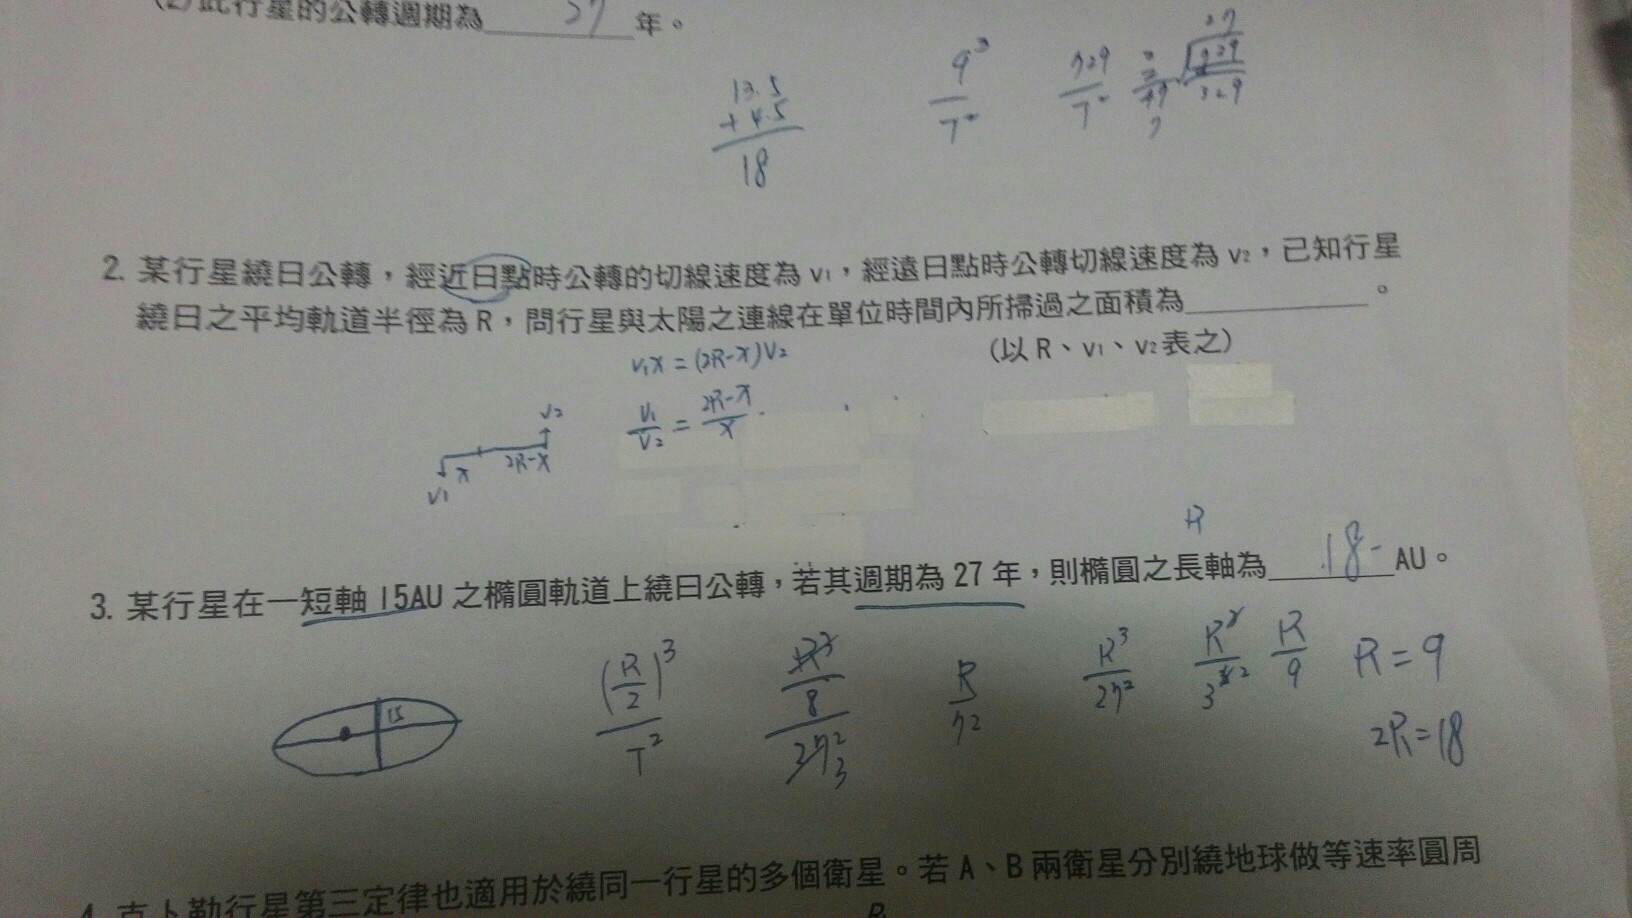 (2)此行星的公轉週期為 27 年。
13.5
+ 4.5
18
9³
T²
729
T²
27
729
729
2. 某行星繞日公轉，經近日點時公轉的切線速度為 v₁，經遠日點時公轉切線速度為 v₂，已知行星
繞日之平均軌道半徑為 R，問行星與太陽之連線在單位時間內所掃過之面積為＿＿＿＿＿。
(以 R、v₁、v₂ 表之)
V₁X = (2R-X)V₂
V₁/V₂ = (2R-X)/X
V₂
X 2R-X
V₁
R
3. 某行星在一短軸 15AU 之橢圓軌道上繞日公轉，若其週期為 27 年，則橢圓之長軸為 18 AU。
15
(R/2)³
T²
R³
8
27²
3
R³
27²
R
9
R = 9
2R = 18
4. 克卜勒行星第三定律也適用於繞同一行星的多個衛星。若 A、B 兩衛星分別繞地球做等速率圓周